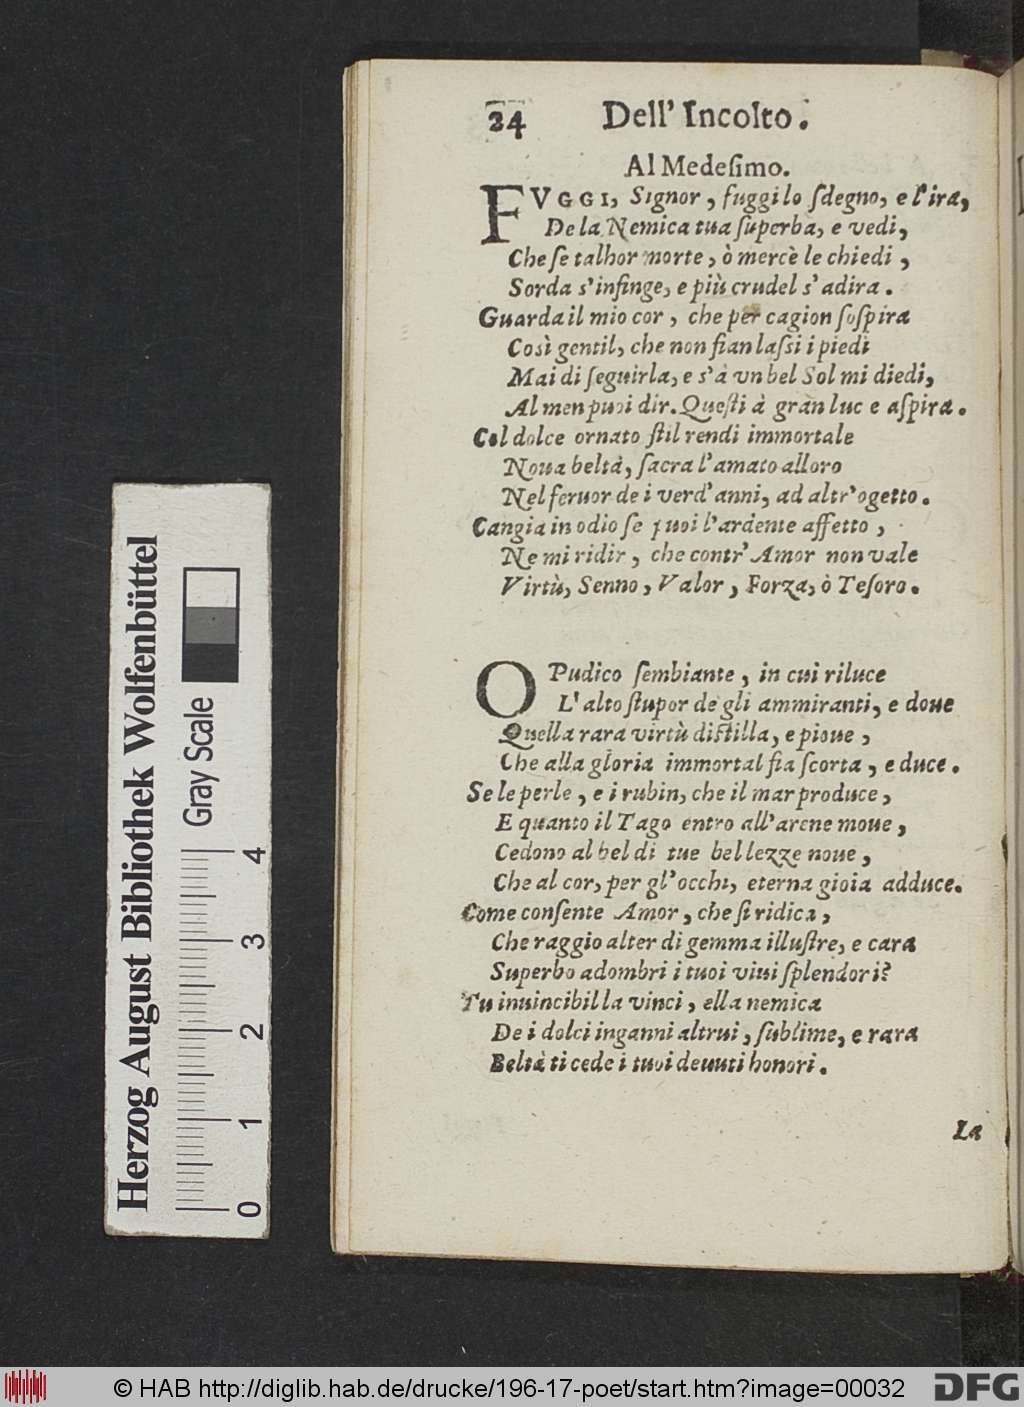 24 Dell' Incolto.
Al Medeſimo.
FVGGI, Signor, fuggi lo ſdegno, e l'ira,
De la Nemica tua ſuperba, e vedi,
Che ſe talhor morte, ò mercè le chiedi,
Sorda s'infinge, e più crudel s'adira.
Guarda il mio cor, che per cagion ſoſpira
Così gentil, che non fian laſsi i piedi
Mai di ſeguirla, e s'à vn bel Sol mi diedi,
Al men puoi dir. Queſti à gran luc e aſpira.
Col dolce ornato ſtil rendi immortale
Noua beltà, ſacra l'amato alloro
Nel feruor de i verd'anni, ad altr'ogetto.
Cangia in odio ſe puoi l'ardente affetto,
Ne mi ridir, che contr'Amor non vale
Virtù, Senno, Valor, Forza, ò Teſoro.
O Pudico ſembiante, in cui riluce
L'alto ſtupor de gli ammiranti, e doue
Quella rara virtù diſtilla, e pioue,
Che alla gloria immortal fia ſcorta, e duce.
Se le perle, e i rubin, che il mar produce,
E quanto il Tago entro all'arene moue,
Cedono al bel di tue bellezze noue,
Che al cor, per gl'occhi, eterna gioia adduce.
Come conſente Amor, che ſi ridica,
Che raggio alter di gemma illuſtre, e cara
Superbo adombri i tuoi viui ſplendori?
Tu inuincibil la vinci, ella nemica
De i dolci inganni altrui, ſublime, e rara
Beltà ti cede i tuoi deuuti honori.
La
Herzog August Bibliothek Wolfenbüttel
Gray Scale
0 1 2 3 4
© HAB http://diglib.hab.de/drucke/196-17-poet/start.htm?image=00032
DFG